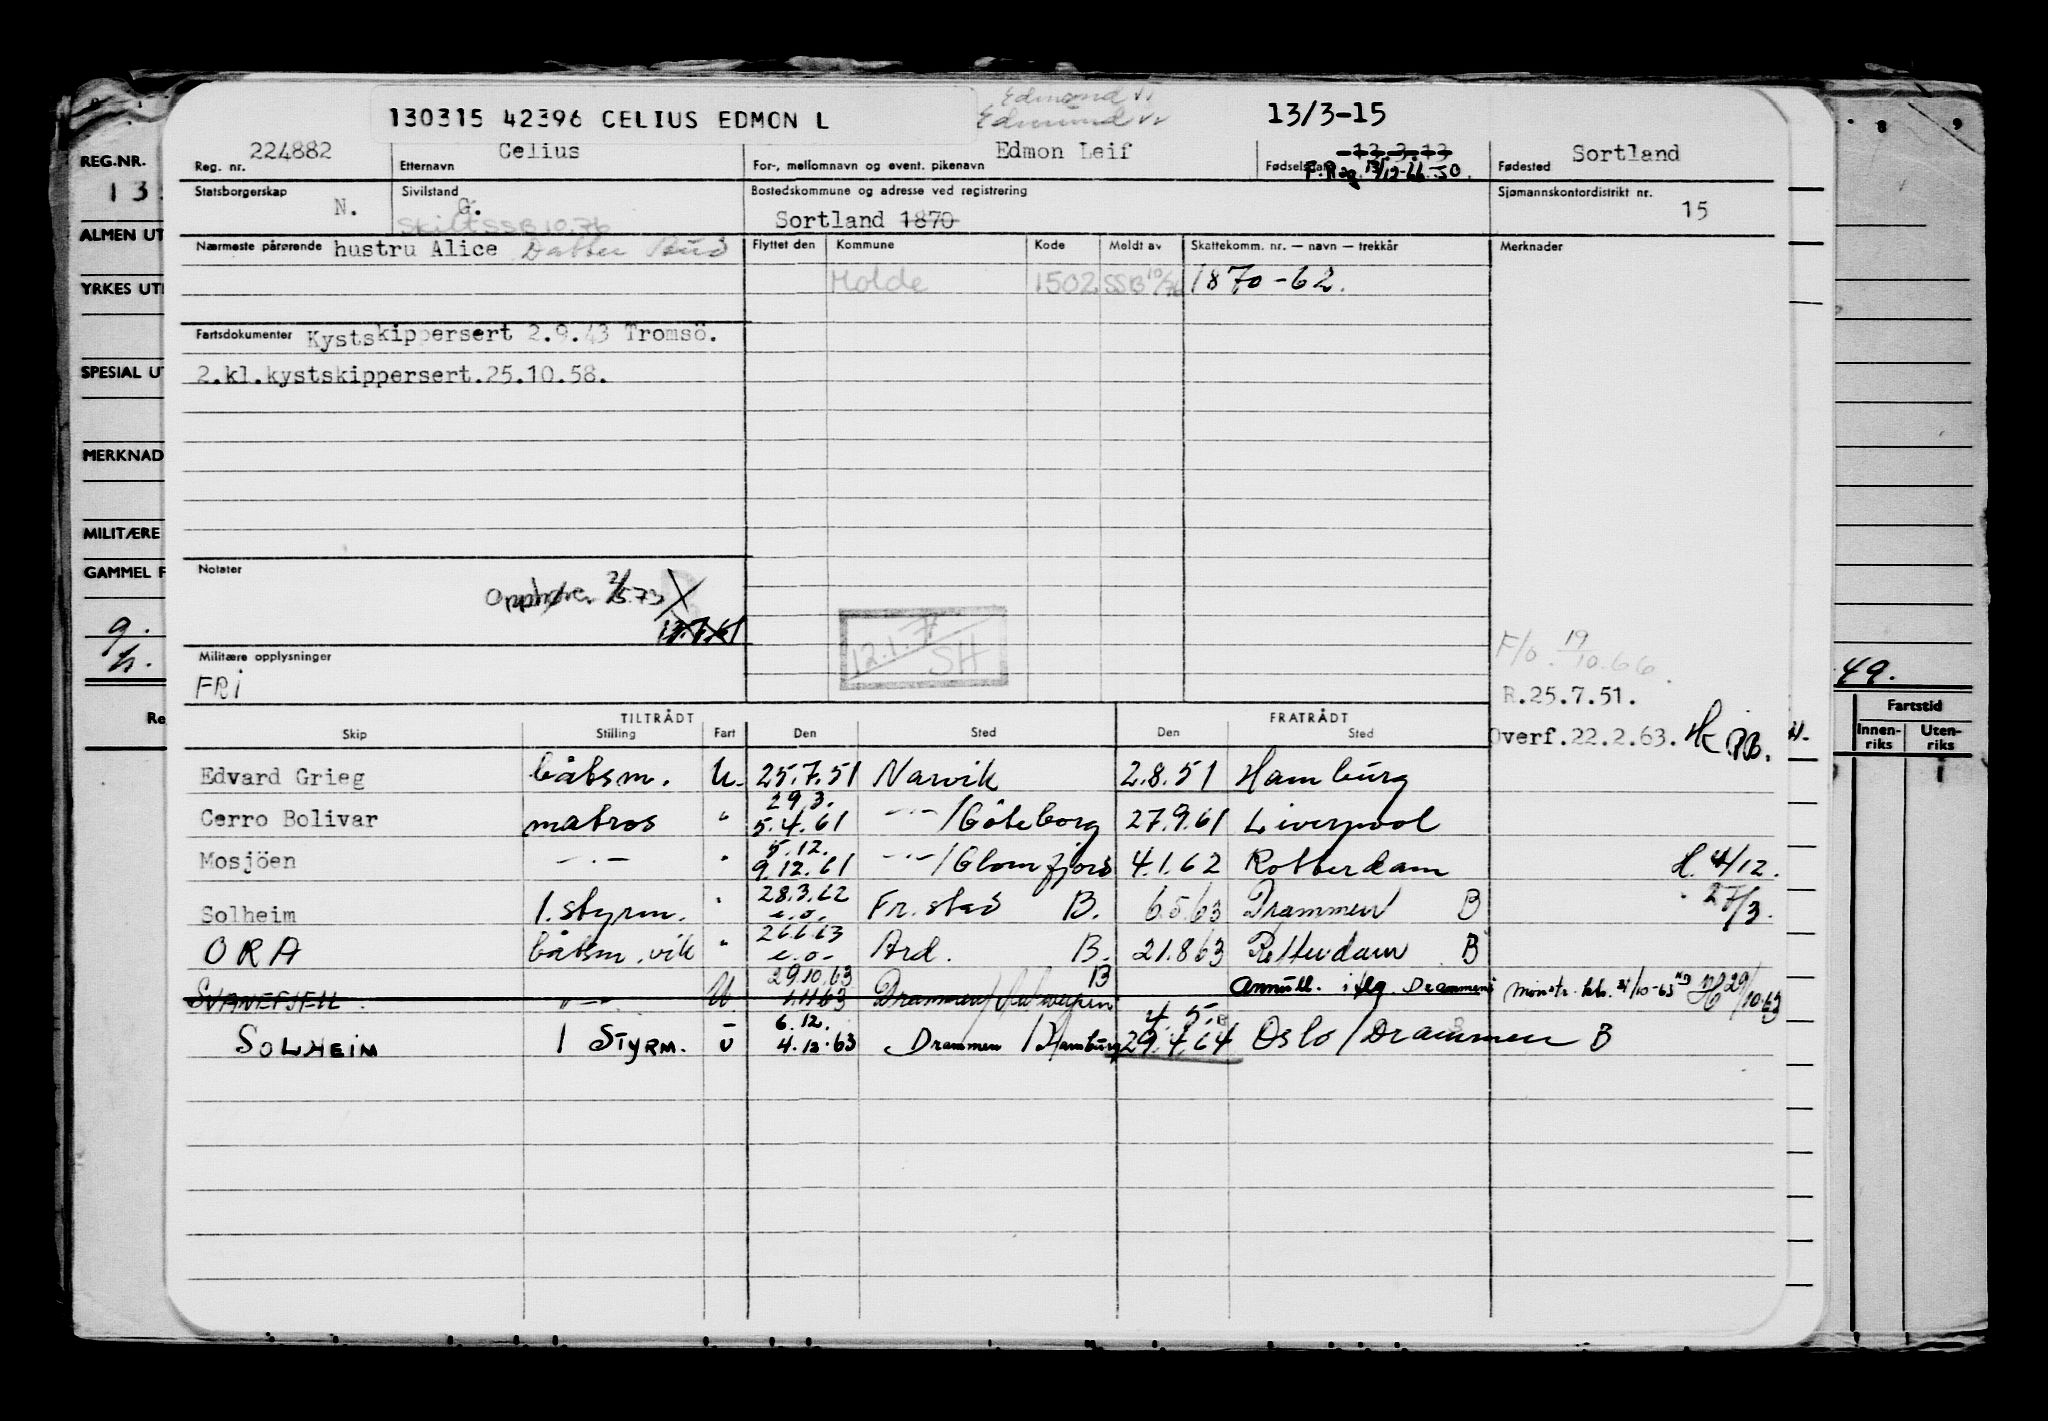 Edmond
130315 42396 CELIUS EDMON L Edmund 13/3-15
REG.NR. Reg. nr. 224882 Etternavn Celius For-, mellomnavn og event. pikenavn Edmon Leif Fødselsdato 13.3.13 Fødested Sortland 8 9
F.Reg. 13/12-66. SO.
13
Statsborgerskap N. Sivilstand G. Bostedskommune og adresse ved registrering Sortland 1870 Sjømannskontordistrikt nr. 15
Skilt SSB 10.76
ALMEN UT
Nærmeste pårørende hustru Alice Datter Flyttet den Kommune Kode Meldt av Skattekomm. nr. — navn — trekkår Merknader
YRKES UT
Molde 1502 SSB 10/76 1870-62.
Fartsdokumenter Kystskippersert 2.9.43 Tromsö.
SPESIAL UT 2.kl.kystskippersert.25.10.58.
MERKNAD
MILITÆRE
GAMMEL F Notater
Opphører 2/5.73 X
17.7.61
12.1.71 SH
Militære opplysninger
FRI
F/o. 19/10.66.
R.25.7.51.
49.
Overf.22.2.63. H
Fartstid
Innenriks Utenriks
TILTRÅDT FRATRÅDT
Skip Stilling Fart Den Sted Den Sted
Edvard Grieg båtsm. U. 25.7.51 Narvik 2.8.51 Hamburg
Cerro Bolivar matros " 29.3. 5.4.61 -"-/Göteborg 27.9.61 Liverpool
Mosjöen -"- " 5.12. 9.12.61 -"-/Glomfjord 4.1.62 Rotterdam H. 4/12.
Solheim 1.styrm. " 28.3.62 e.o. Fr.stad B. 6.5.63 Drammen B 27/3.
ORA båtsm.vik " 26.6.63 e.o. Ard. B. 21.8.63 Rotterdam B
SVANEFJELL. -"- U. 29.10.63 1.11.63 Drammen/Antwerpen B Annull. i flg. Drammens mønstr. ktr. 31/10-63 H 29/10.63
SOLHEIM 1 STYRM. U 6.12. 4.12.63 Drammen/Hamburg 4.5. 29.4.64 Oslo/Drammen B